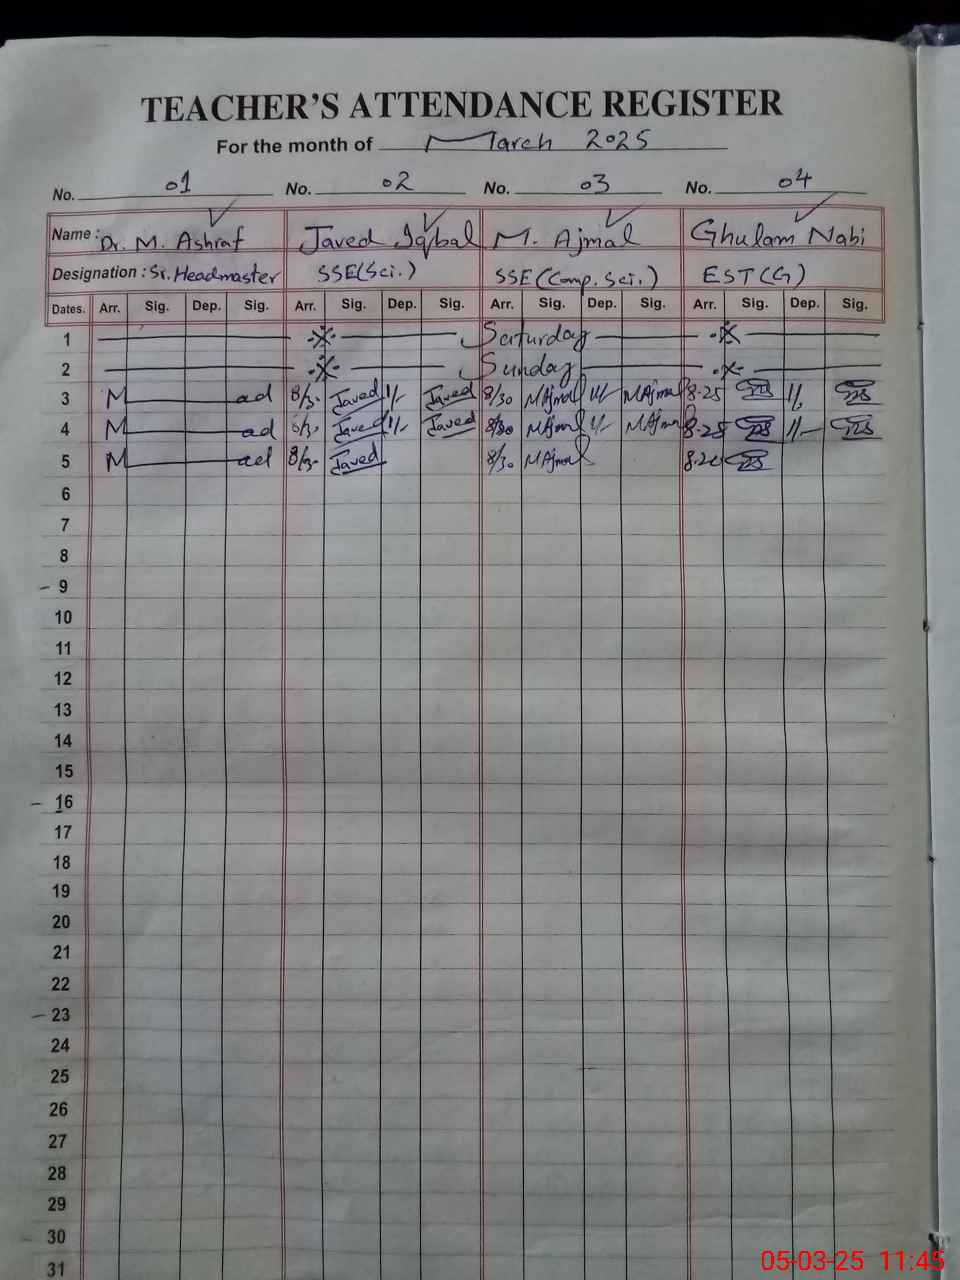 TEACHER'S ATTENDANCE REGISTER
For the month of March 2025
No. 01 No. 02 No. 03 No. 04
Name : Dr. M. Ashraf Javed Iqbal M. Ajmal Ghulam Nabi
Designation : Sr. Headmaster SSE(Sci.) SSE(Comp. Sci.) EST(G)
Dates. Arr. Sig. Dep. Sig. Arr. Sig. Dep. Sig. Arr. Sig. Dep. Sig. Arr. Sig. Dep. Sig.
1 Saturday
2 Sunday
3 M ad 8/30 Javed Javed 8/30 MAjmal MAjmal 8.25
4 M ad Javed Javed 8/30 MAjmal MAjmal 8.25
5 M ad 8/30 Javed 8/30 MAjmal
6
7
8
9
10
11
12
13
14
15
16
17
18
19
20
21
22
23
24
25
26
27
28
29
30
31
05-03-25 11:45